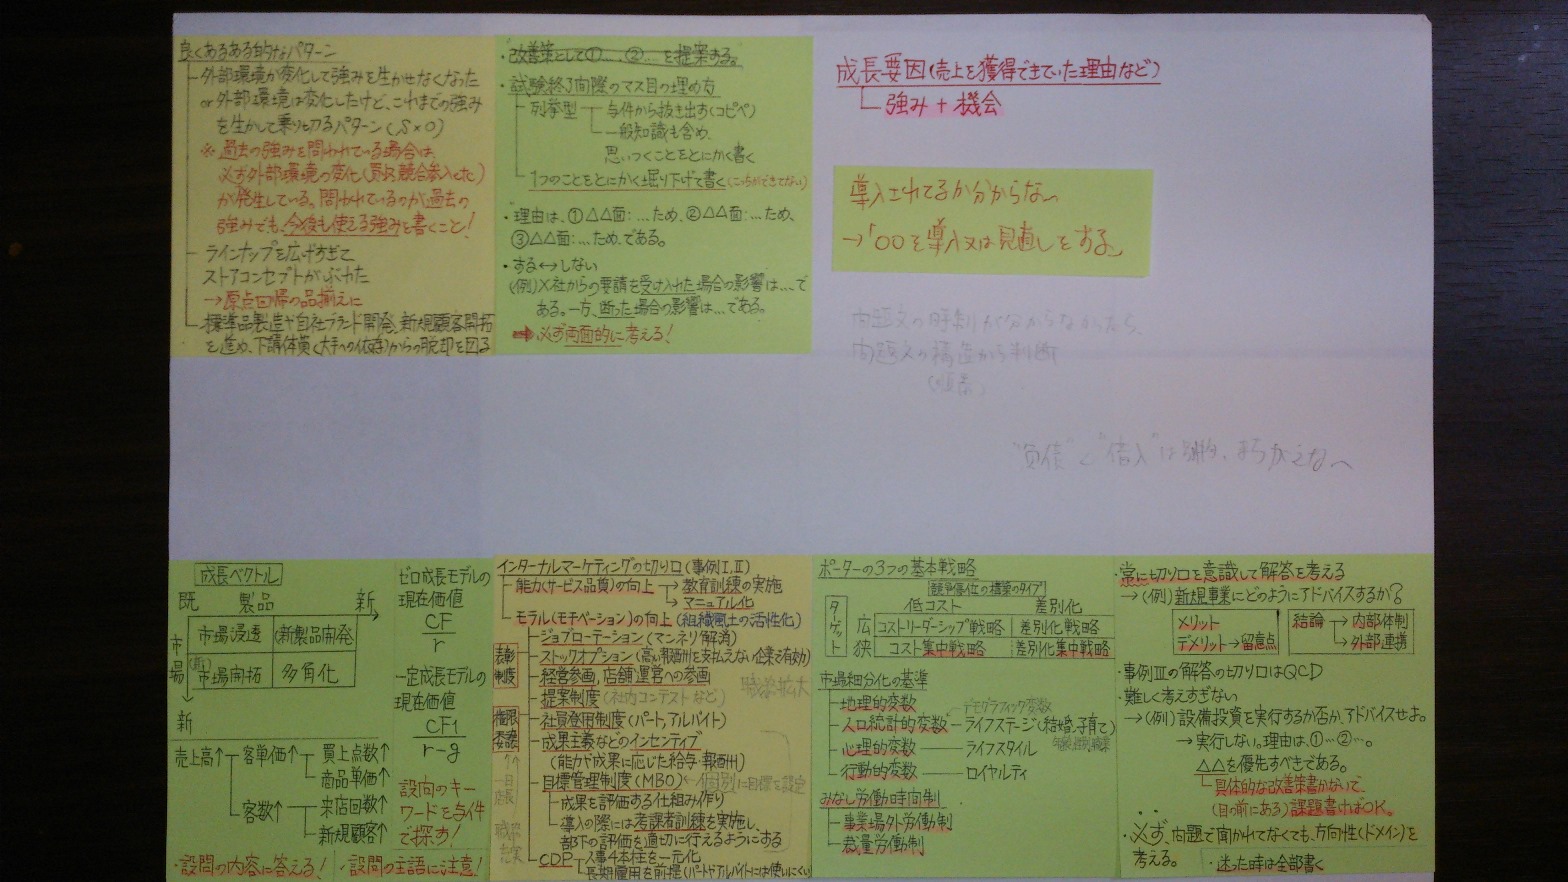 良くあるある的なパターン
外部環境が変化して強みを生かせなくなった
or 外部環境は変化したけど、これまでの強み
を生かして乗り切るパターン(S×O)
※過去の強みを問われている場合は、
必ず外部環境の変化(買収、競合参入etc)
が発生している。問われているのが過去の
強みでも、今後も使える強みを書くこと!
ラインナップを広げすぎて
ストアコンセプトがぶれた
→原点回帰の品揃えに
標準品製造や自社ブランド開発、新規顧客開拓
を進め、下請体質(大手への依存)からの脱却を図る
・改善策として①…、②…を提案する。
・試験終了間際のマス目の埋め方
列挙型
与件から抜き出す(コピペ)
一般知識も含め、
思いつくことをとにかく書く
1つのことをとにかく堀り下げて書く(こっちができてない)
・理由は、①△△面:…ため、②△△面:…ため、
③△△面:…ため、である。
・する⟷しない
(例)X社からの要請を受け入れた場合の影響は…で
ある。一方、断った場合の影響は…である。
➡必ず両面的に考える!
成長要因(売上を獲得できていた理由など)
強み+機会
導入されてるか分からない
→「○○を導入又は見直しをする」
問題文の時制が分からなかったら、
問題文の構造から判断
"負債"と"借入"は別物、まちがえない
成長ベクトル
既 製品 新
市場
市場浸透 新製品開発
(新)市場開拓 多角化
新
売上高↑ 客単価↑ 買上点数↑
商品単価↑
客数↑ 来店回数↑
新規顧客↑
・設問の内容に答える!
ゼロ成長モデルの
現在価値
CF
r
一定成長モデルの
現在価値
CF1
r-g
設問のキー
ワードを与件
で探す!
・設問の主語に注意!
インターナルマーケティングの切り口(事例Ⅰ,Ⅱ)
能力(サービス品質)の向上→教育訓練の実施
→マニュアル化
モラル(モチベーション)の向上(組織風土の活性化)
表彰制度
権限委譲
ジョブローテーション(マンネリ解消)
ストックオプション(高い報酬を支払えない企業で有効)
経営参画、店舗運営への参画
職務拡大
提案制度(社内コンテストなど)
社員登用制度(パート,アルバイト)
成果主義などのインセンティブ
(能力や成果に応じた給与・報酬)
目標管理制度(MBO)←個別に目標を設定
成果を評価する仕組み作り
導入の際には考課者訓練を実施し、
部下の評価を適切に行えるようにする
CDP
人事4本柱を一元化
長期雇用を前提(パートやアルバイトには使いにくい)
ポーターの3つの基本戦略
競争優位の構築のタイプ
ターゲット
低コスト 差別化
広 コストリーダーシップ戦略 差別化戦略
狭 コスト集中戦略 差別化集中戦略
市場細分化の基準
地理的変数
デモグラフィック変数
人口統計的変数 ライフステージ(結婚,子育て)
年齢,性別,職業
心理的変数 ライフスタイル
行動的変数 ロイヤルティ
みなし労働時間制
事業場外労働制
裁量労働制
・常に切り口を意識して解答を考える
→(例)新規事業にどのようにアドバイスするか?
メリット
デメリット→留意点
結論→内部体制
→外部連携
・事例Ⅲの解答の切り口はQCD
・難しく考えすぎない
→(例)設備投資を実行するか否か、アドバイスせよ。
→実行しない。理由は、①…②…。
△△を優先すべきである。
具体的な改善策書かないで、
(目の前にある)課題書けばOK。
・必ず、問題で聞かれてなくても、方向性(ドメイン)を
考える。
・迷った時は全部書く